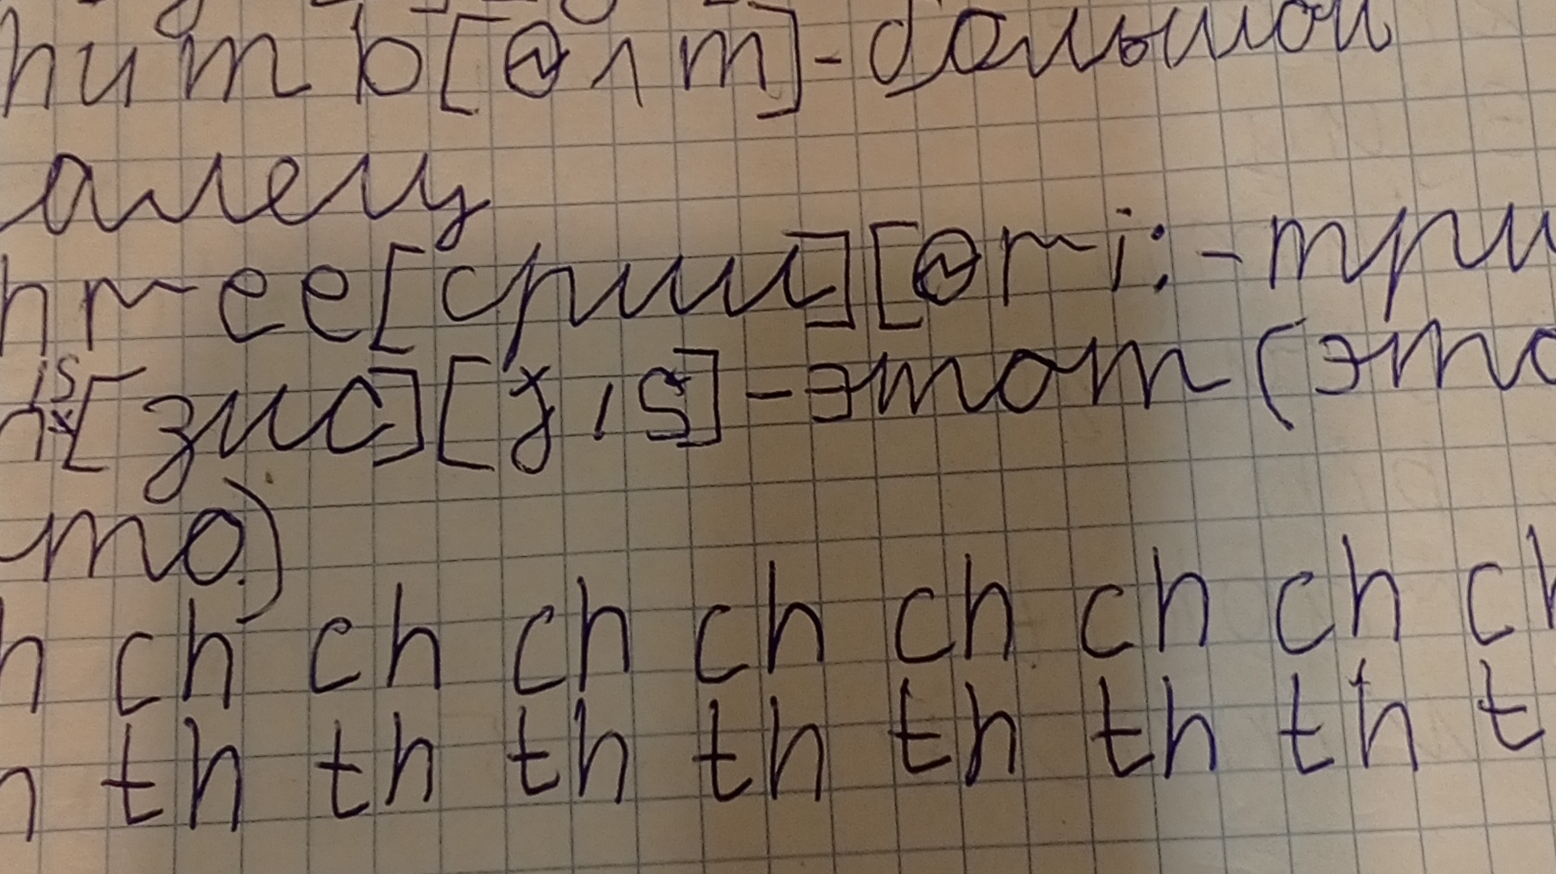 humb[θʌm]-большой
палец
hree[сриии][θri:-три
his[зис][ðıs]-этом (это
то)
h ch ch ch ch ch ch ch ch
h th th th th th th th t